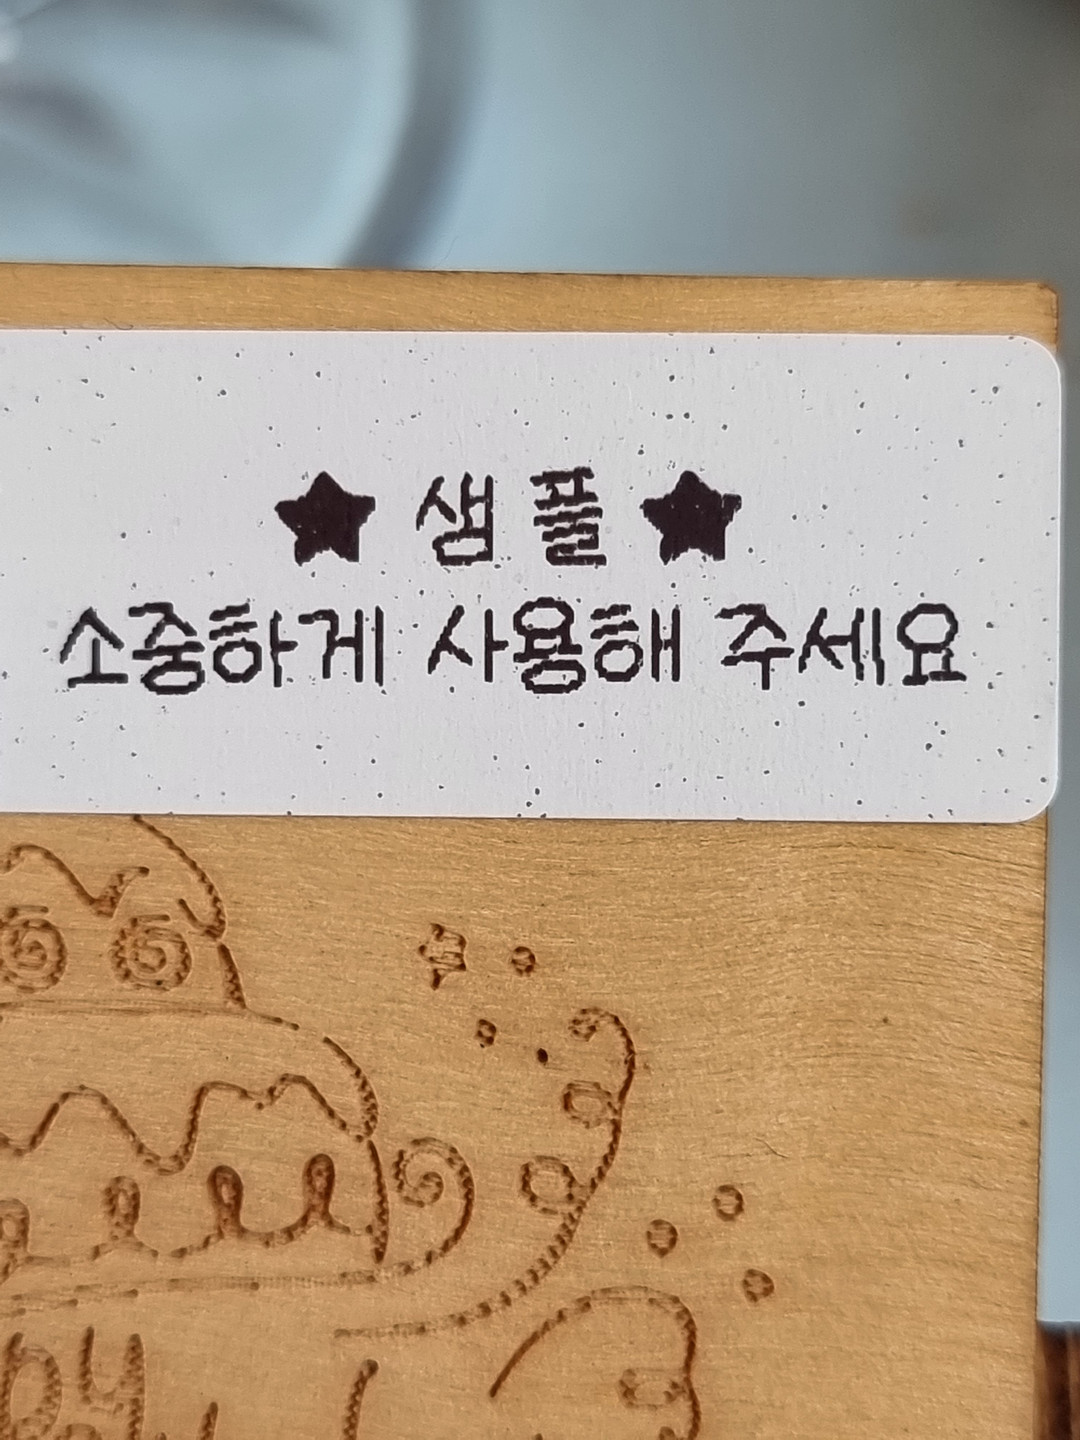 ★ 샘 플 ★
소중하게 사용해 주세요